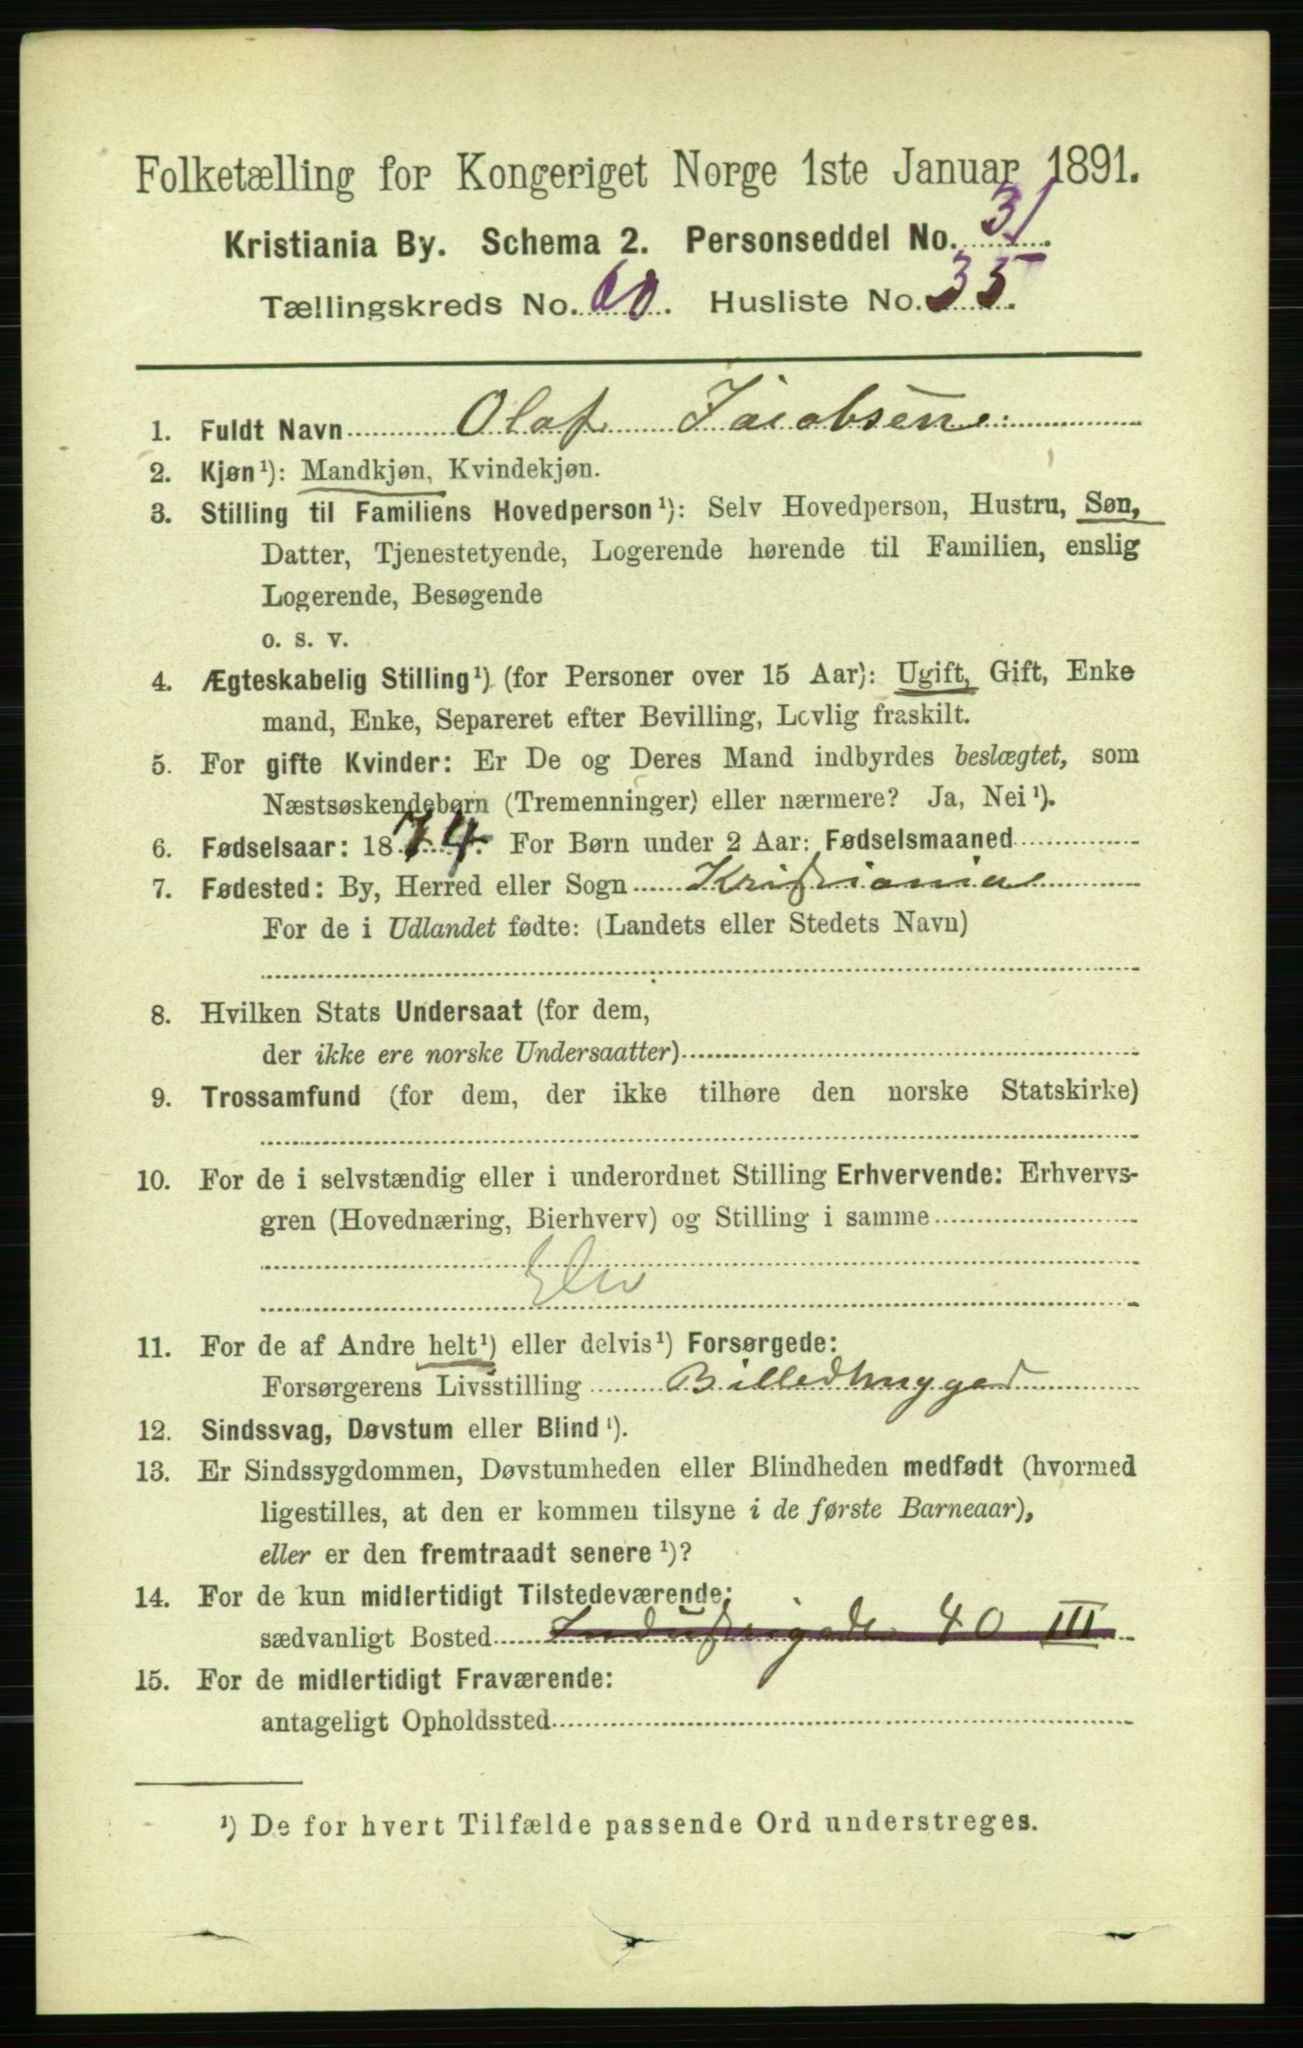 Folketælling for Kongeriget Norge 1ste Januar 1891.
Kristiania By. Schema 2. Personseddel No. 31.
Tællingskreds No. 60. Husliste No. 35.
1. Fuldt Navn Olaf Jacobsen
2. Kjøn¹): Mandkjøn, Kvindekjøn.
3. Stilling til Familiens Hovedperson¹): Selv Hovedperson, Hustru, Søn,
Datter, Tjenestetyende, Logerende hørende til Familien, enslig
Logerende, Besøgende
o. s. v.
4. Ægteskabelig Stilling¹) (for Personer over 15 Aar): Ugift, Gift, Enke
mand, Enke, Separeret efter Bevilling, Lovlig fraskilt.
5. For gifte Kvinder: Er De og Deres Mand indbyrdes beslægtet, som
Næstsøskendebørn (Tremenninger) eller nærmere? Ja, Nei¹).
6. Fødselsaar: 1874. For Børn under 2 Aar: Fødselsmaaned
7. Fødested: By, Herred eller Sogn Kristiania
For de i Udlandet fødte: (Landets eller Stedets Navn)
8. Hvilken Stats Undersaat (for dem,
der ikke ere norske Undersaatter)
9. Trossamfund (for dem, der ikke tilhøre den norske Statskirke)
10. For de i selvstændig eller i underordnet Stilling Erhvervende: Erhvervs-
gren (Hovednæring, Bierhverv) og Stilling i samme
Elev
11. For de af Andre helt¹) eller delvis¹) Forsørgede:
Forsørgerens Livsstilling Billedhugger
12. Sindssvag, Døvstum eller Blind¹).
13. Er Sindssygdommen, Døvstumheden eller Blindheden medfødt (hvormed
ligestilles, at den er kommen tilsyne i de første Barneaar),
eller er den fremtraadt senere¹)?
14. For de kun midlertidigt Tilstedeværende:
sædvanligt Bosted Industrigade 40 III
15. For de midlertidigt Fraværende:
antageligt Opholdssted
¹) De for hvert Tilfælde passende Ord understreges.